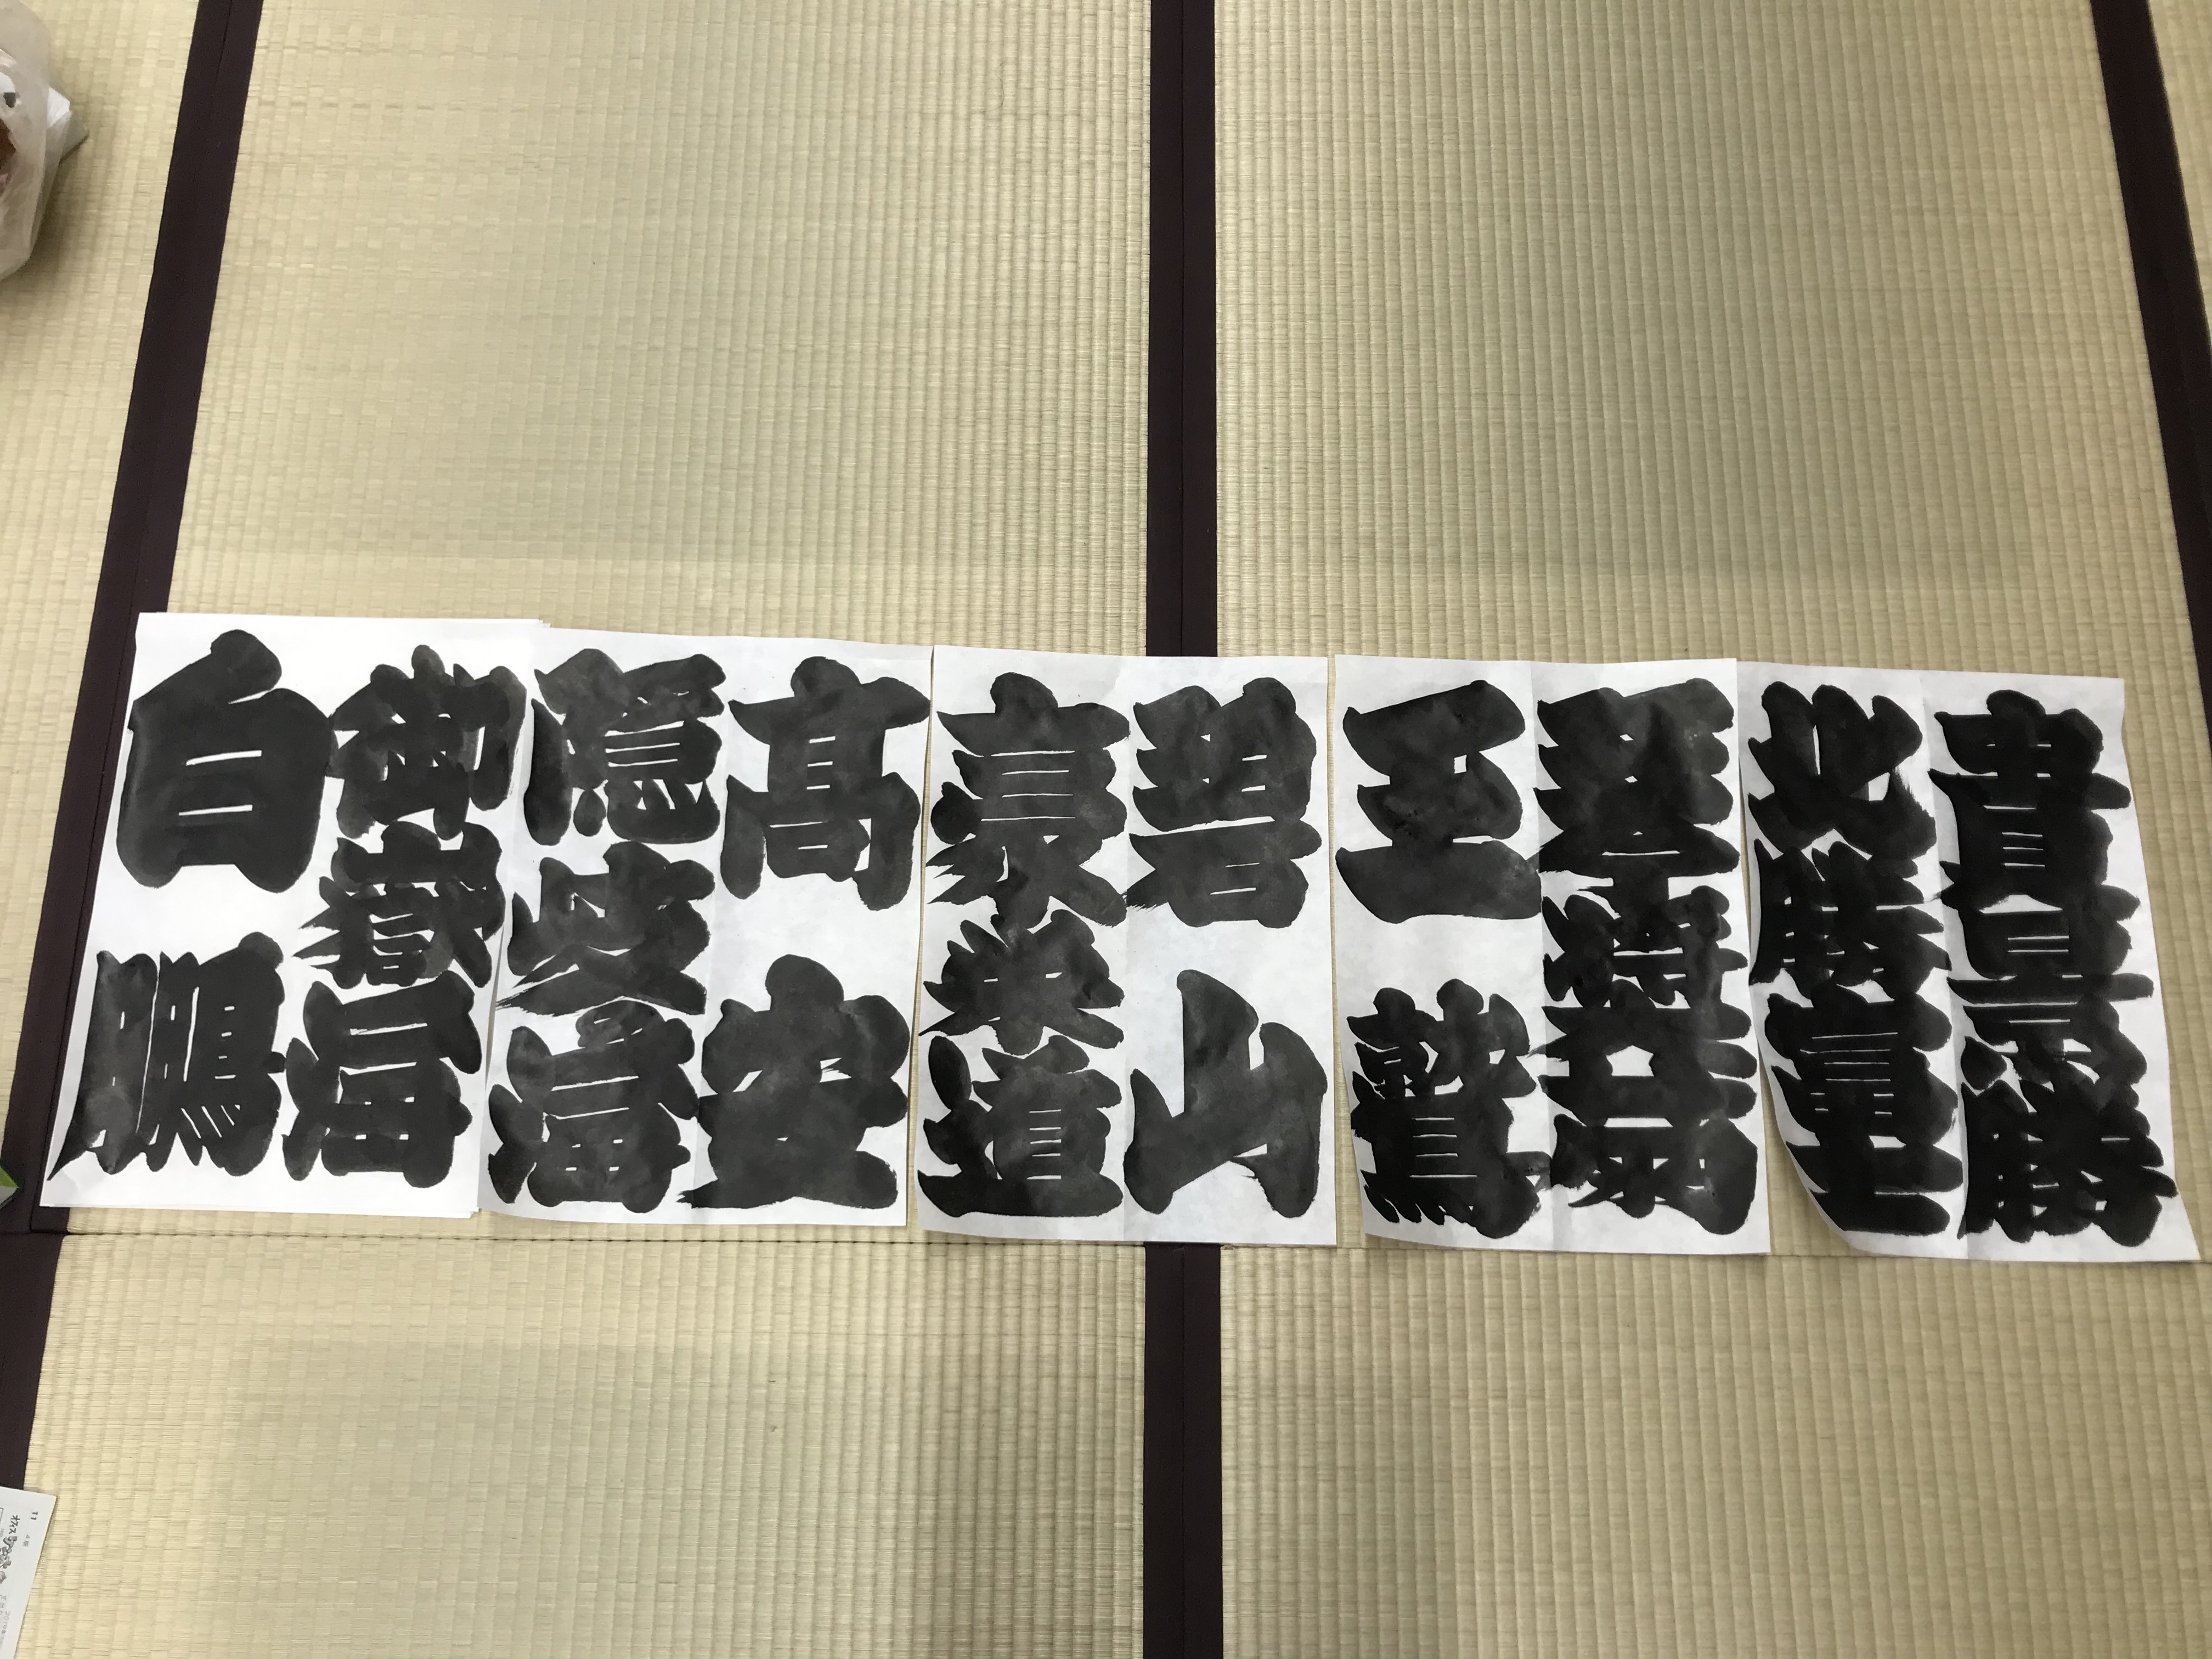 貴景勝
北勝富士
琴奨菊
玉鷲
碧山
豪栄道
髙安
隠岐の海
御嶽海
白鵬